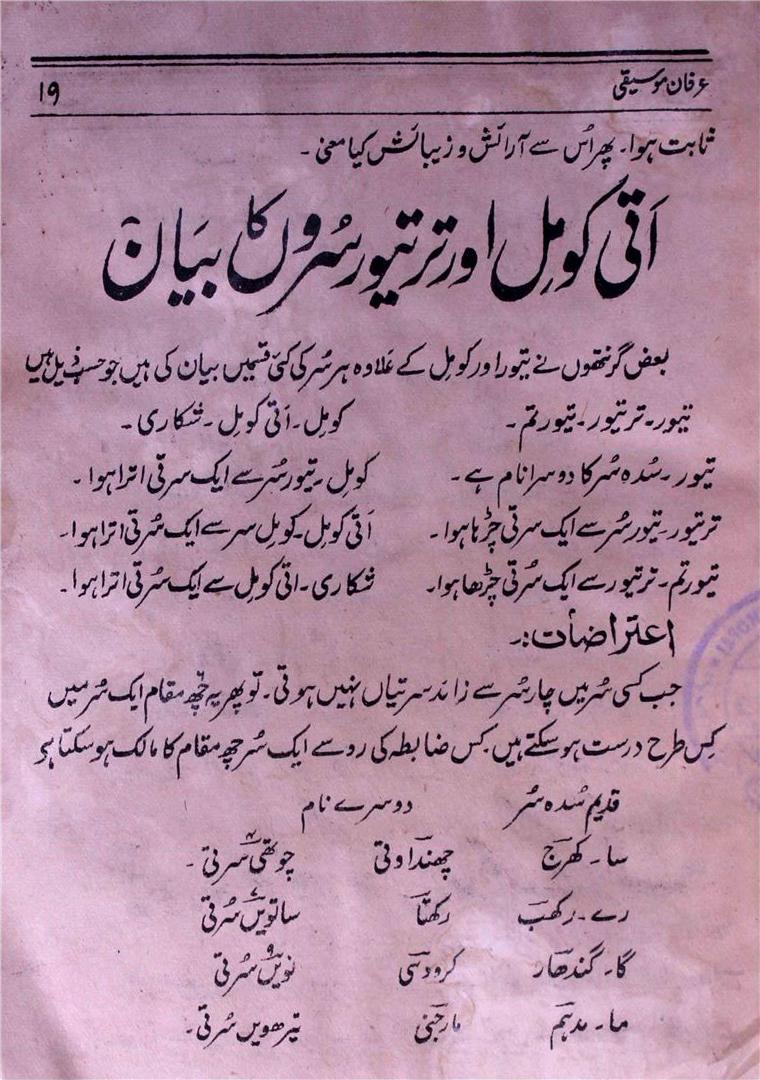 عرفان موسیقی ۱۹
ثابت ہوا۔ پھر اُس سے آرائش و زیبائش کیا معنی ۔
اَتی کومِل اور تر تیور سُروں کا بیَان
بعض گرنتھوں نے تیور اور کومِل کے علاوہ ہر سُر کی کئی قسمیں بیان کی ہیں جو حسبِ ذیل ہیں
تیور۔ تر تیور۔ تیور تم ۔ کومل۔ اَتی کومِل ۔ شکاری ۔
تیور ۔ سُدہ سُر کا دوسرا نام ہے ۔ کومل ۔ تیور سُر سے ایک سرتی اترا ہوا ۔
تر تیور۔ تیور سُر سے ایک سرتی چڑہا ہوا ۔ اَتی کومِل ۔ کومِل سر سے ایک سُرتی اترا ہوا۔
تیور تم ۔ تر تیور سے ایک سُرتی چڑھا ہوا۔ شکاری ۔ اتی کومِل سے ایک سُرتی اترا ہوا۔
اعتراضات:۔
جب کسی سُر میں چار سُر سے زائد سرتیاں نہیں ہوتی ۔ تو پھر یہ چھ مقام ایک سُر میں
کِس طرح درست ہو سکتے ہیں۔ کس ضابطہ کی رو سے ایک سُر چھ مقام کا مالک ہو سکتا ہے
قدیم سُدہ سُر دوسرے نام
سا ۔ کھرج چھنداوتی چوتھی ۴ سرتی ۔
رے ۔ رکھب رکھتا ساتویں ۷ سُرتی
گا ۔ گندھار کرودسی نویں ۹ سُرتی
ما ۔ مدہم مارجنی تیرھویں سُرتی ۔